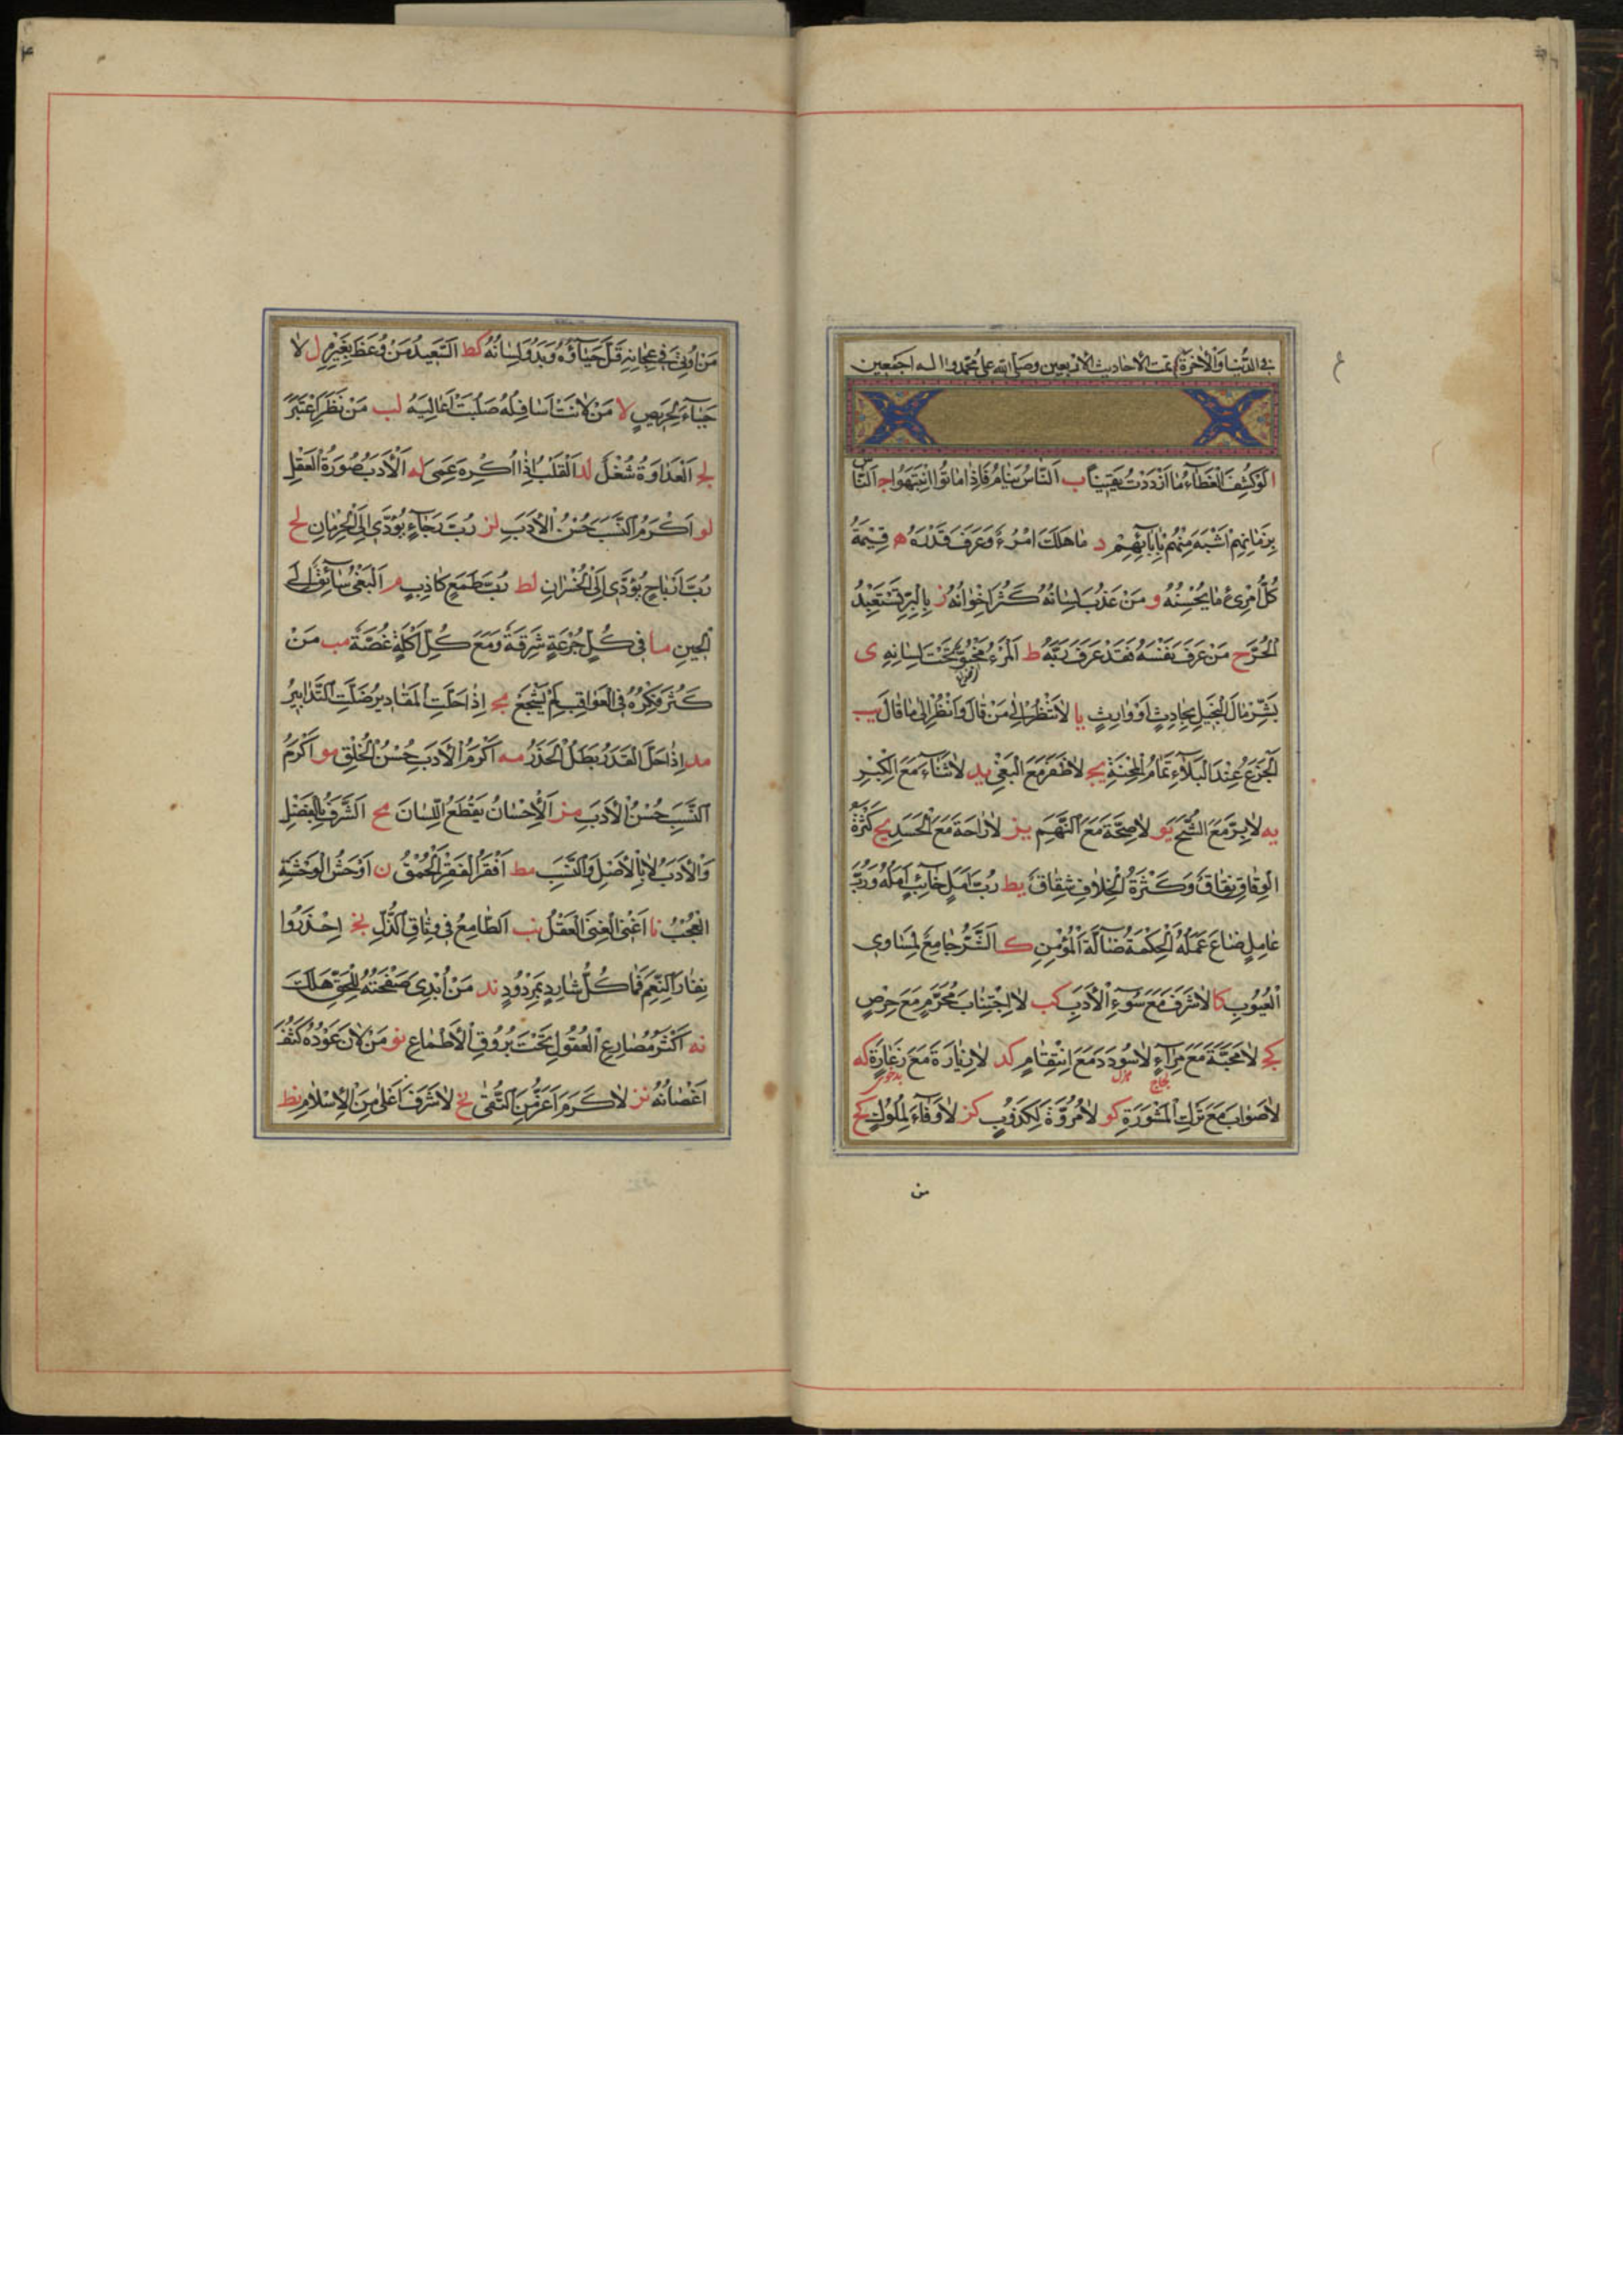 في الدنيا والاخرة تمت الاحاديث الاربعين وصلى الله على محمد واله اجمعين
ا لَوْ كُشِفَ الْغِطَاءُ مَا ازْدَدْتُ يَقِينًا ب اَلنَّاسُ نِيَامٌ فَاِذَا مَاتُوا انْتَبَهُوا ج اَلنَّاسُ
بِزَمَانِهِمْ اَشْبَهُ مِنْهُمْ بِاٰبَائِهِمْ د مَا هَلَكَ امْرُءٌ وَعَرَفَ قَدْرَهُ ه قِيْمَةُ
كُلِّ امْرِئٍ مَا يُحْسِنُهُ و مَنْ عَذُبَ لِسَانُهُ كَثُرَ اِخْوَانُهُ ز بِالْبِرِّ تَسْتَعْبِدُ
الْحُرَّ ح مَنْ عَرَفَ نَفْسَهُ فَقَدْ عَرَفَ رَبَّهُ ط اَلْمَرْءُ مَخْبُوٌّ تَحْتَ لِسَانِهِ ى
بَشِّرْ مَالَ الْبَخِيلِ بِحَادِثٍ اَوْ وَارِثٍ يا لَا تَنْظُرْ اِلٰى مَنْ قَالَ وَانْظُرْ اِلٰى مَا قَالَ يب
اَلْجَزَعُ عِنْدَ الْبَلَاءِ تَمَامُ الْمِحْنَةِ يج لَا ظَفَرَ مَعَ الْبَغْيِ يد لَا ثَنَاءَ مَعَ الْكِبْرِ
يه لَا بِرَّ مَعَ الشُّحِّ يو لَا صِحَّةَ مَعَ النَّهَمِ يز لَا رَاحَةَ مَعَ الْحَسَدِ يح كَثْرَةُ
الْوِفَاقِ نِفَاقٌ وَكَثْرَةُ الْخِلَافِ شِقَاقٌ يط رُبَّ اَمَلٍ خَائِبٌ اَمَلُهُ وَرُبَّ
عَامِلٍ ضَاعَ عَمَلُهُ اَلْحِكْمَةُ ضَالَّةُ الْمُؤْمِنِ ك اَلشَّرُّ جَامِعٌ لِمَسَاوِي
الْعُيُوبِ كا لَا شَرَفَ مَعَ سُوءِ الْاَدَبِ كب لَا اجْتِنَابَ مُحَرَّمٍ مَعَ حِرْصٍ
كج لَا مَحَبَّةَ مَعَ مِرَاءٍ لَا سُودَدَ مَعَ انْتِقَامٍ كد لَا زِيَارَةَ مَعَ زَعَارَةٍ كه
لَا صَوَابَ مَعَ تَرْكِ الْمَشْوَرَةِ كو لَا مُرُوَّةَ لِكَذُوبٍ كز لَا وَفَاءَ لِمُلُوكٍ كح
من
مَنْ اُوتِيَ فِي عِجَانِهِ قَلَّ حَيَاؤُهُ وَبَدُوَ لِسَانُهُ كط اَلسَّعِيدُ مَنْ وُعِظَ بِغَيْرِهِ ل لَا
حَيَاءَ لِحَرِيصٍ لا مَنْ لَانَتْ اَسَافِلُهُ صَلُبَتْ اَعَالِيَهُ لب مَنْ نَظَرَ اِعْتَبَرَ
لج اَلْعَدَاوَةُ شُغْلٌ لد اَلْقَلْبُ اِذَا اُكْرِهَ عَمِيَ له اَلْاَدَبُ صُورَةُ الْعَقْلِ
لو اَكْرَمُ النَّسَبِ حُسْنُ الْاَدَبِ لز رُبَّ رَجَاءٍ يُؤَدِّي اِلَى الْحِرْمَانِ لح
رُبَّ اَرْبَاحٍ يُؤَدِّي اِلَى الْخُسْرَانِ لط رُبَّ طَمَعٍ كَاذِبٍ م اَلْبَغْيُ سَائِقٌ اِلَى
الْحَيْنِ ما فِي كُلِّ جُرْعَةٍ شَرِقَةٌ وَمَعَ كُلِّ اَكْلَةٍ غُصَّةٌ مب مَنْ
كَثُرَ فِكْرُهُ فِي الْعَوَاقِبِ لَمْ يَشْجَعْ مج اِذَا حَلَّتِ الْمَقَادِيرُ ضَلَّتِ التَّدَابِيرُ
مد اِذَا حَلَّ الْقَدَرُ بَطَلَ الْحَذَرُ مه اَكْرَمُ الْاَدَبِ حُسْنُ الْخُلْقِ مو اَكْرَمُ
النَّسَبِ حُسْنُ الْاَدَبِ مز اَلْاِحْسَانُ يَقْطَعُ اللِّسَانَ مح اَلشَّرَفُ بِالْفَضْلِ
وَالْاَدَبِ لَا بِالْاَصْلِ وَالنَّسَبِ مط اَفْقَرُ الْفَقْرِ الْحُمْقُ ن اَوْحَشُ الْوَحْشَةِ
الْعُجْبُ نا اَغْنَى الْغِنَى الْعَقْلُ نب اَلطَّامِعُ فِي وِثَاقِ الذُّلِّ نج اِحْذَرُوا
نِفَارَ النِّعَمِ فَمَا كُلُّ شَارِدٍ بِمَرْدُودٍ ند مَنْ اَبْدٰى صَفْحَتَهُ لِلْحَقِّ هَلَكَ
نه اَكْثَرُ مَصَارِعِ الْعُقُولِ تَحْتَ بُرُوقِ الْاَطْمَاعِ نو مَنْ لَانَ عَوْدُهُ كَثُفَ
اَغْصَانُهُ نز لَا كَرَمَ اَعَزُّ مِنَ التُّقٰى نح لَا شَرَفَ اَعْلٰى مِنَ الْاِسْلَامِ نط